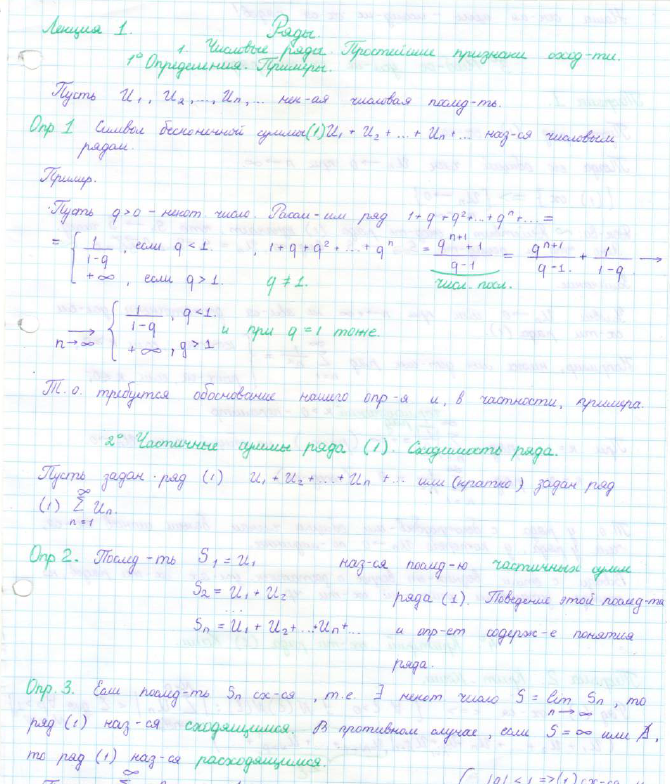 Лекция 1. Ряды.
1. Числовые ряды. Простейшие признаки сход-ти.
1° Определения. Примеры.
Пусть U₁, U₂, ..., Uₙ, ... нек-ая числовая послед-ть.
Опр 1 Символ бесконечной суммы (1) U₁ + U₂ + ... + Uₙ + ... наз-ся числовым
рядом.
Пример.
Пусть q > 0 – некот. число. Рассм-им ряд 1 + q + q² + ... + qⁿ + ... =
= { 1/(1-q), если q < 1. , 1 + q + q² + ... + qⁿ = (qⁿ⁺¹ + 1)/(q-1) = qⁿ⁺¹/(q-1) + 1/(1-q) →
+∞, если q > 1. q ≠ 1. числ. посл.
→ n→∞ { 1/(1-q), q < 1. +∞, q > 1 и при q = 1 тоже.
Т.о. требуется обоснование нашего опр-я и, в частности, примера.
2° Частичные суммы ряда (1). Сходимость ряда.
Пусть задан ряд (1) U₁ + U₂ + ... + Uₙ + ... или (кратко) задан ряд
(1) ∑ₙ₌₁^∞ Uₙ.
Опр 2. Послед-ть S₁ = U₁ наз-ся послед-ю частичных сумм
S₂ = U₁ + U₂ ряда (1). Поведение этой послед-ти
...
Sₙ = U₁ + U₂ + ... + Uₙ + ... и опр-ет содерж-е понятия
ряда.
Опр. 3. Если послед-ть Sₙ сх-ся, т.е. ∃ некот число S = lim n→∞ Sₙ, то
ряд (1) наз-ся сходящимся. В противном случае, если S = ∞ или ∄,
то ряд (1) наз-ся расходящимся.